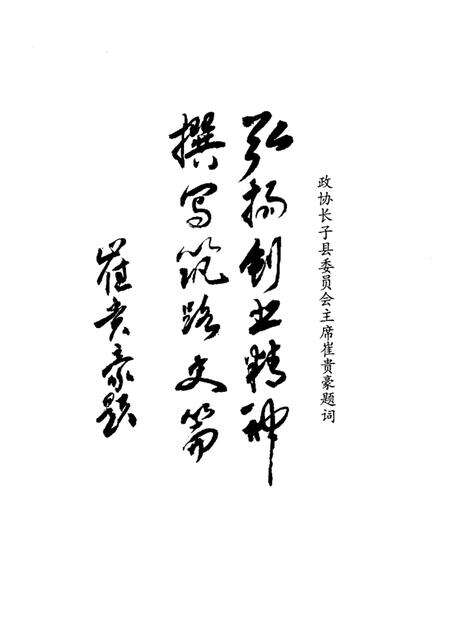 政协长子县委员会主席崔贵豪题词
弘扬创业精神
撰写筑路史篇
崔贵豪题